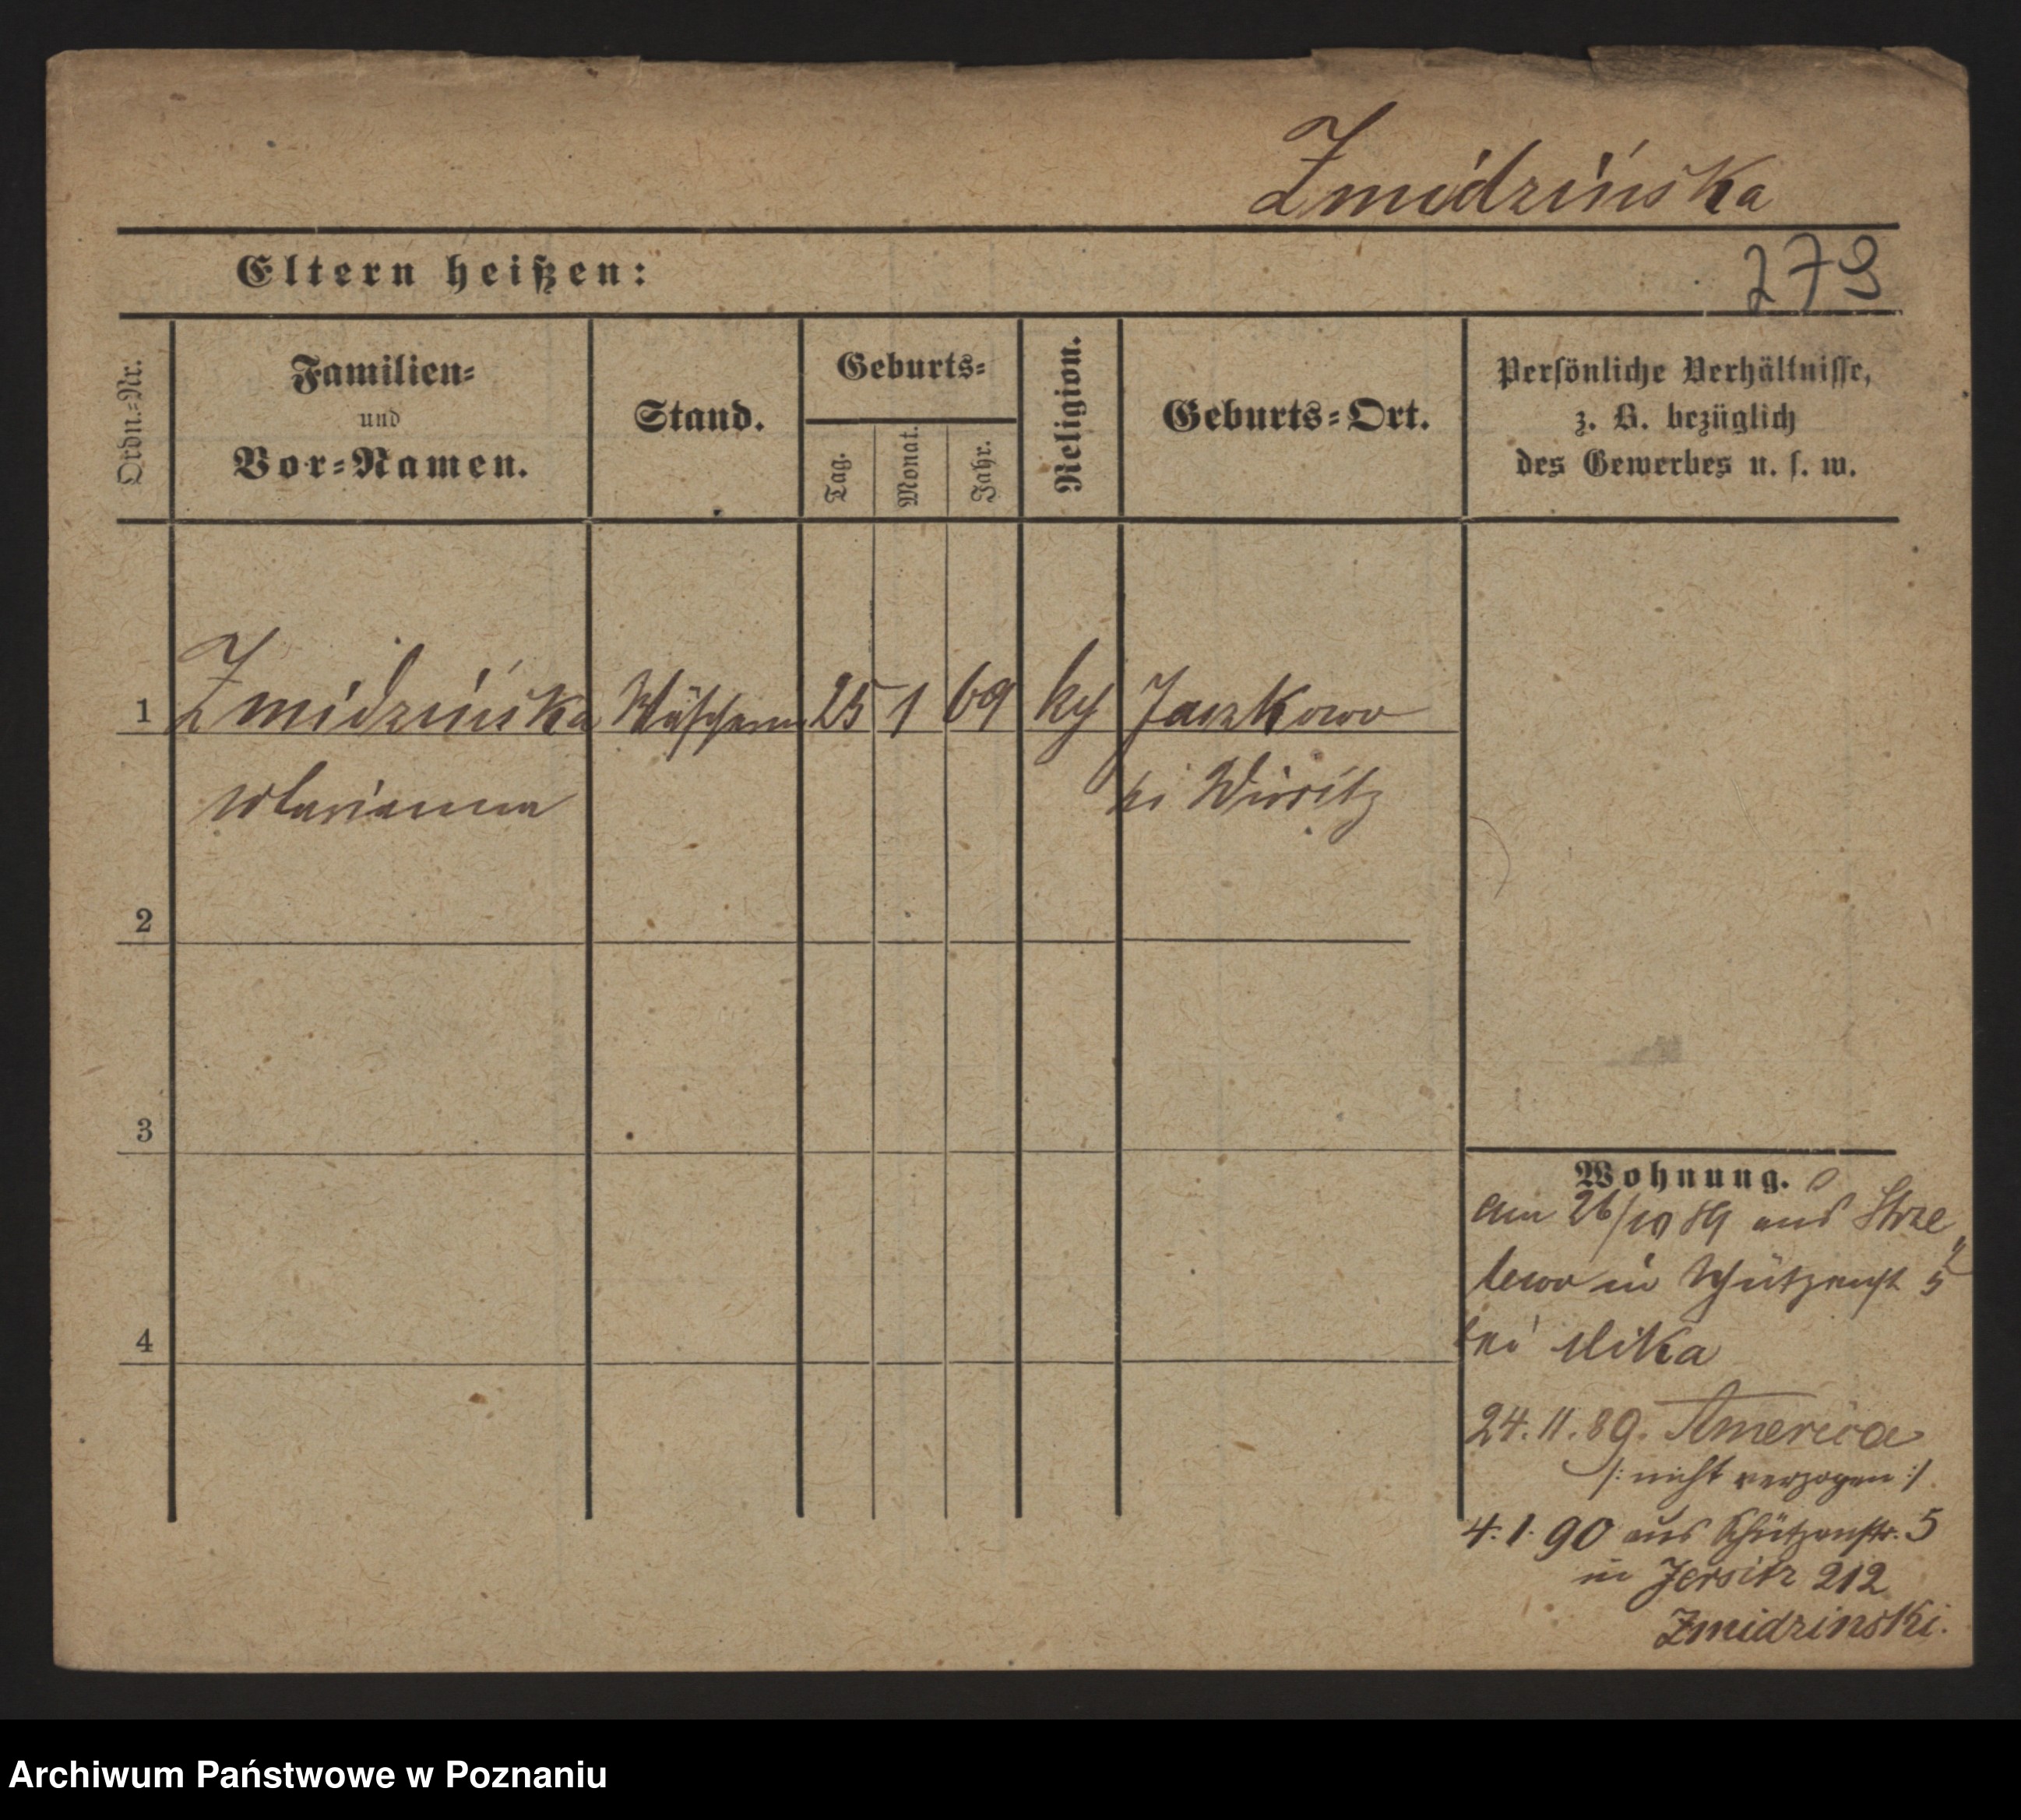 Zmidzińska
273
Eltern heißen:
Ordn.-Nr.
Familien-
und
Vor-Namen.
Stand.
Geburts-
Tag.
Monat.
Jahr.
Religion.
Geburts-Ort.
Persönliche Verhältnisse,
z. B. bezüglich
des Gewerbes u. s. w.
1 Zmidzińska 25 1 69 Jaszkowo
Marianna bei Wirsitz
2
3
4
Wohnung.
am 26/10 89 aus Strze
lewo in Schützenst 5
bei Mika
24. 11. 89. America
/: nicht verzogen :/
4. 1. 90 aus Schützenstr. 5
in Jersitz 212
Zmidzinski.
Archiwum Państwowe w Poznaniu